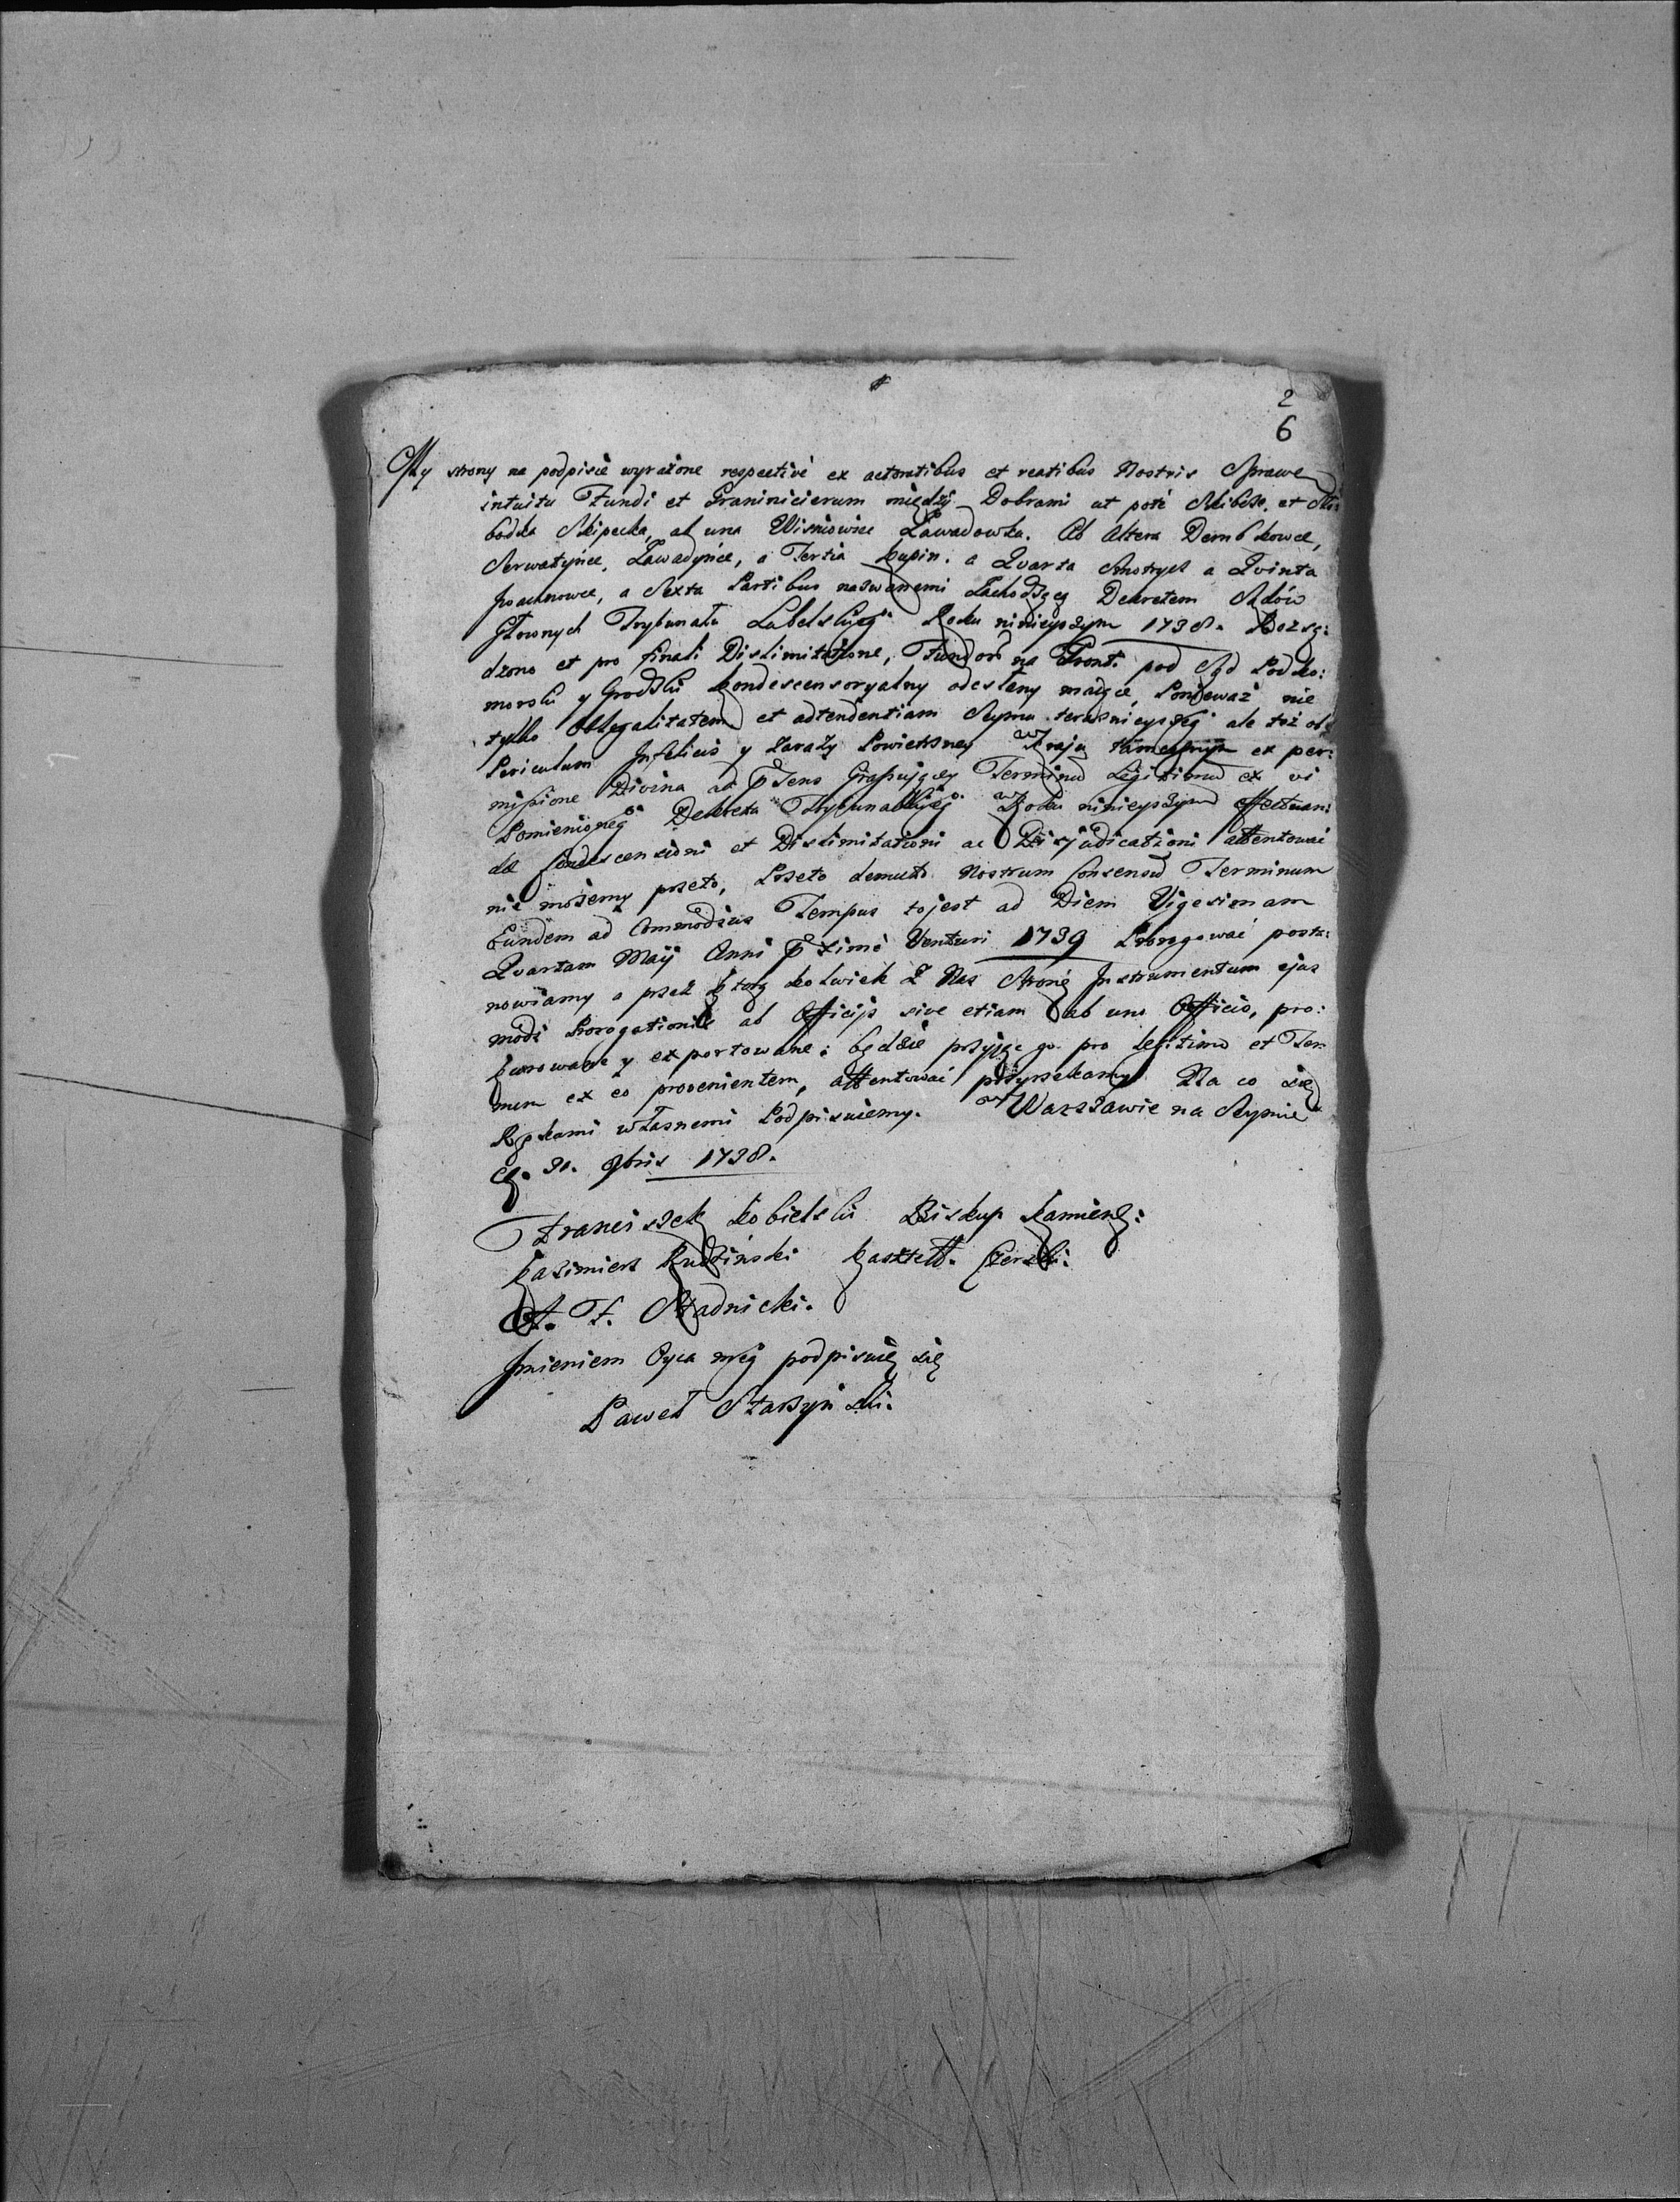 2
6
My strony na podpisie wyrażone respectivè ex actoratibus et reatibus Nostris Sprawę
intuitu Fundi et Graninicierum między Dobrami ut poté Skibcze, et Sło:
bodka Skipecka, ab una Wisniowiec Zawadowka. Ab Altera Dembkowce,
Serwatyńce, Zawadyńce, a Tertia Kupin. a Qvarta Smotrycz a Qvinta
Joachnowce, a Sexta Partibus nazwanemi Zachodzącą Decretem Sądów
Głownych Trybunału Lubelskieg° Roku ninieyszym 1738. Rozsą:
dzono et pro finali Dislimitatione, Fundor na Gront. pod Sąd Podko:
morski y Grodzki kondescensoryalny odesłany maiące, Ponieważ nie
tylko Oblegalitatem et adtendentiam Seymu teraznieyszeg° ale też ob
Periculum Infelicis y Zarazy Powietrzney w Kraju tamecznym ex per:
missione Divina ad pñsens Grassuiącey Terminũ Legitimũ ex vi
Pomienioneg° Dekretu Trybunalskieg° w Roku ninieyszym effectuan:
dæ Condescensioni et Dislimitationi ac Disjudicationi attentować
nie możemy przeto, Przeto demutò Nostrum Consensũ Terminum
Eundem ad Commodius Tempus to jest ad Diem Vigesimam
Qvartam Maij Anni pximè Venturi 1739 Prorogować posta:
nowiamy a przez ktorą kolwiek z Nas Stronę Instrumentum ejus
modi Prorogationis ab Officijs sive etiam ab uno Officio, pro:
kurowane y exportowane: będzie przyjąc go pro legitimo et Ter
minũ ex eo provenientem, attentować przyrzekamy. Na co się
Rękami własnemi Podpisuiemy. w Warszawie na Seymie
D. 31. 8bris 1738.
Franciszek Kobielski Biskup Kamien:
Kazimierz Rudziński Kasztell. Czerski.
A. F. Stadnicki.
Imieniem Oyca meg° podpisuię się
Paweł Starzyński.